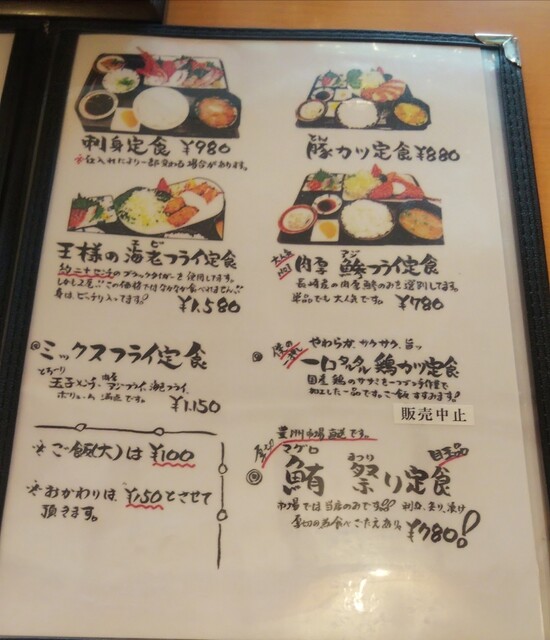 刺身定食 ¥980
※仕入れにより一部変わる場合があります。
とん
豚カツ定食 ¥880
エビ
王様の海老フライ定食
約二十センチのブラックタイガーを使用してます。
しかも2尾!!この価格ではなかなか食べれません!!
身は、ビッチリ入ってます!
¥1,580
大人気
アジ
肉厚 鯵フライ定食
長崎産の肉厚鯵のみを選別してます。
単品でも大人気です。 ¥780
◎ミックスフライ定食
玉子メンチ、アジフライ、海老フライ、
ボリューム満点です。
¥1,150
やわらか、サクサク、旨ッ
一口タルタル鶏カツ定食
国産鶏のササミを一つ一つ手作業で
加工した一品です。ご飯すすみます。
販売中止
※ご飯(大)は ¥100
※おかわりは、¥150とさせて
頂きます。
豊洲市場直送です。
マグロ まつり 目玉品
◎鮪 祭り定食
市場では当店のみです!!
厚切の為食べごたえあり。 ¥780!